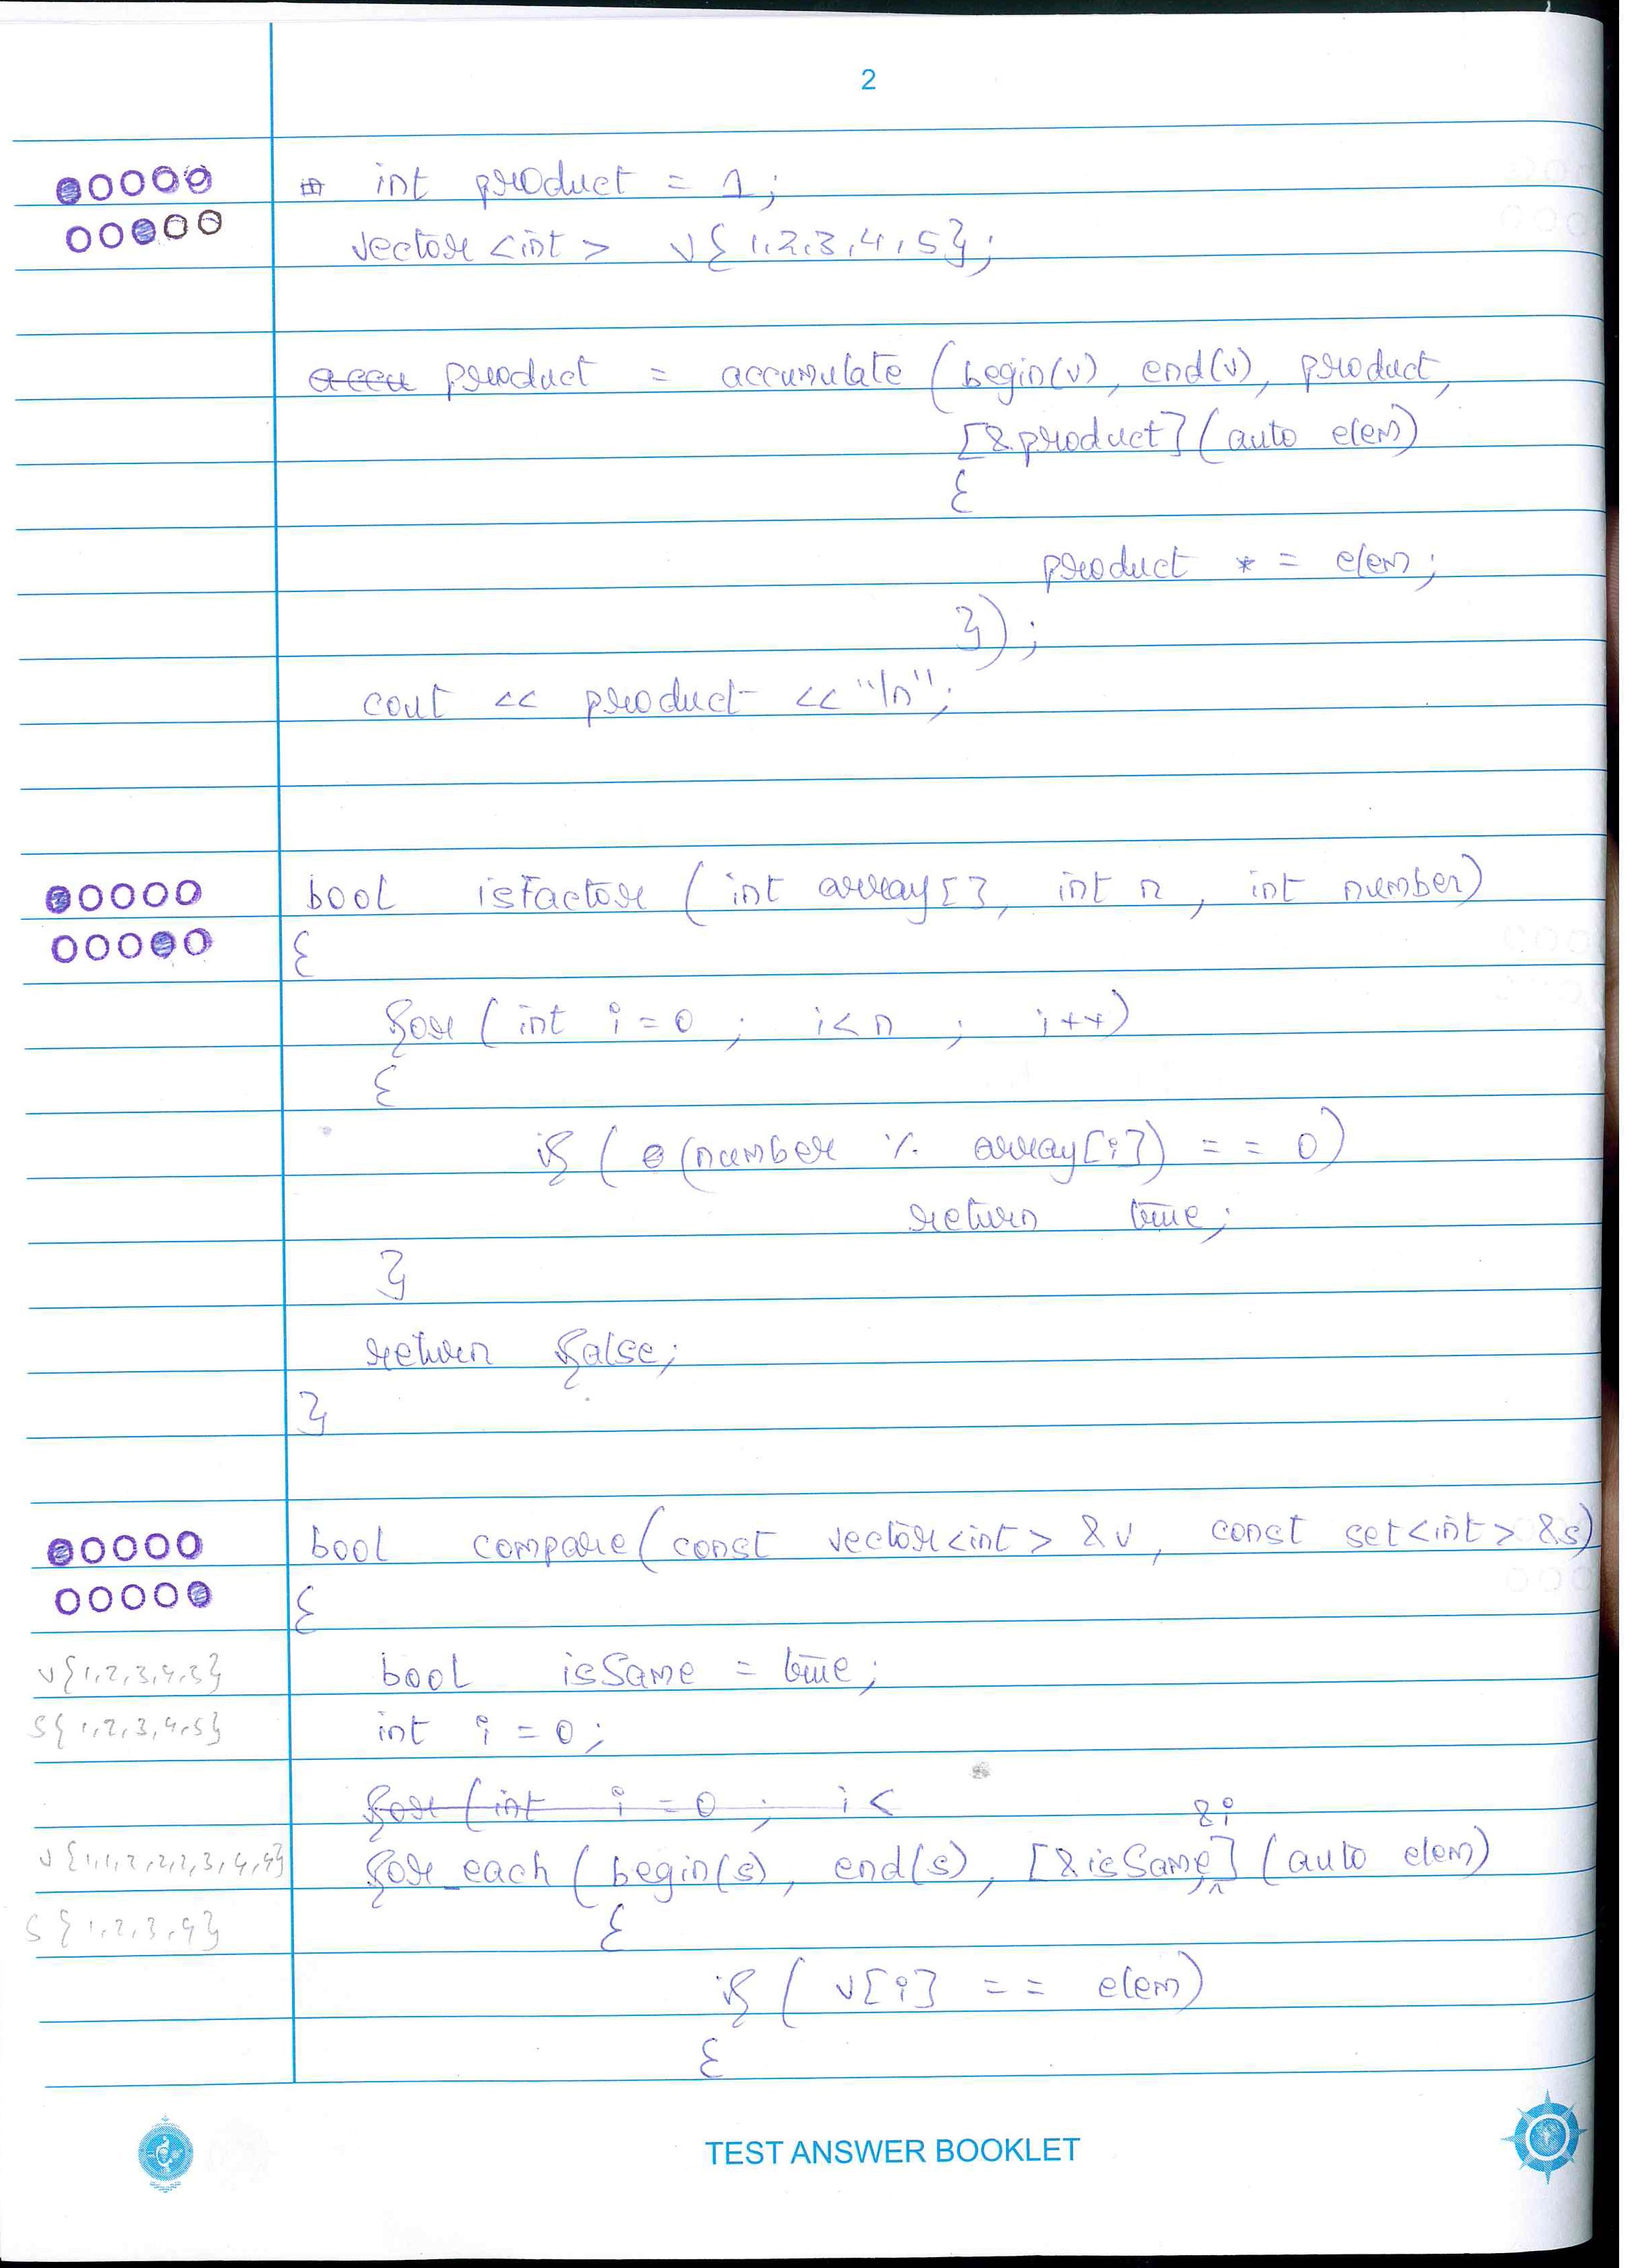 2
int product = 1;
vector <int> v{1,2,3,4,5};
accu product = accumulate (begin(v), end(v), product,
[&product](auto elem)
{
product *= elem;
});
cout << product << "\n";
bool isFactor (int array[], int n, int number)
{
for (int i=0 ; i<n ; i++)
{
if ( (number % array[i]) == 0)
return true;
}
return false;
}
bool compare (const vector<int> &v, const set<int> &s)
{
v{1,2,3,4,5} bool isSame = true;
s{1,2,3,4,5} int i = 0;
for (int i = 0 ; i <
v{1,1,2,2,2,3,4,4} for_each (begin(s), end(s), [&isSame, &i] (auto elem)
s{1,2,3,4} {
if ( v[i] == elem)
{
TEST ANSWER BOOKLET